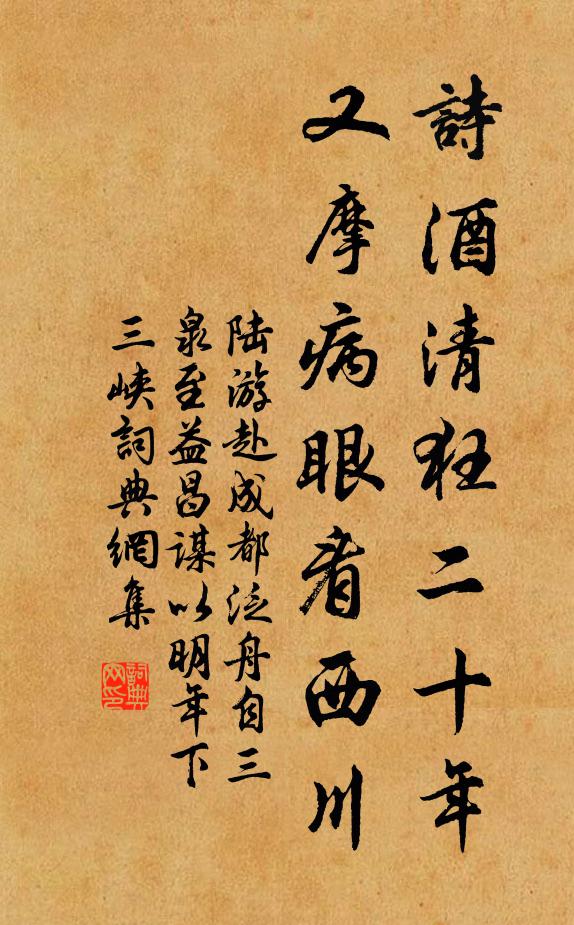 詩酒清狂二十年
又摩病眼看西川
陆游赴成都泛舟自三
泉至益昌谋以明年下
三峡詞典網集
詞典网印